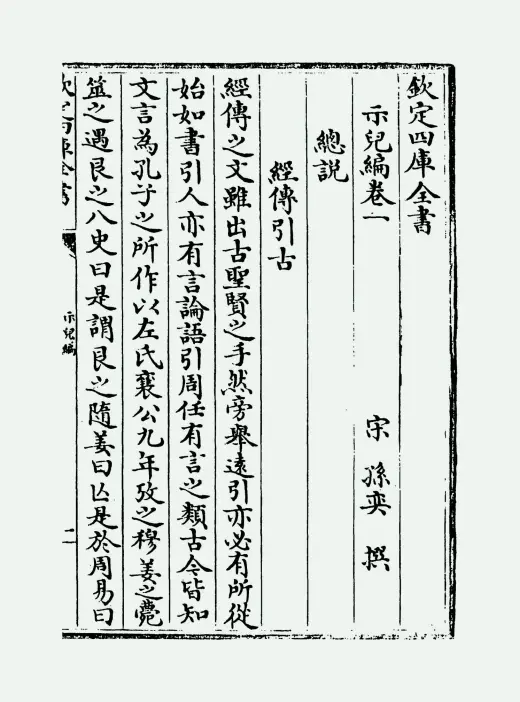 欽定四庫全書
示兒編卷一
宋 孫奕 撰
總説
經傳引古
經傳之文雖出古聖賢之手然旁舉逺引亦必有所從
始如書引人亦有言論語引周任有言之類古今皆知
文言為孔子之所作以左氏襄公九年攷之穆姜之薨
筮之遇艮之八史曰是謂艮之隨姜曰亾是於周易曰
欽定四庫全書
示兒編
二